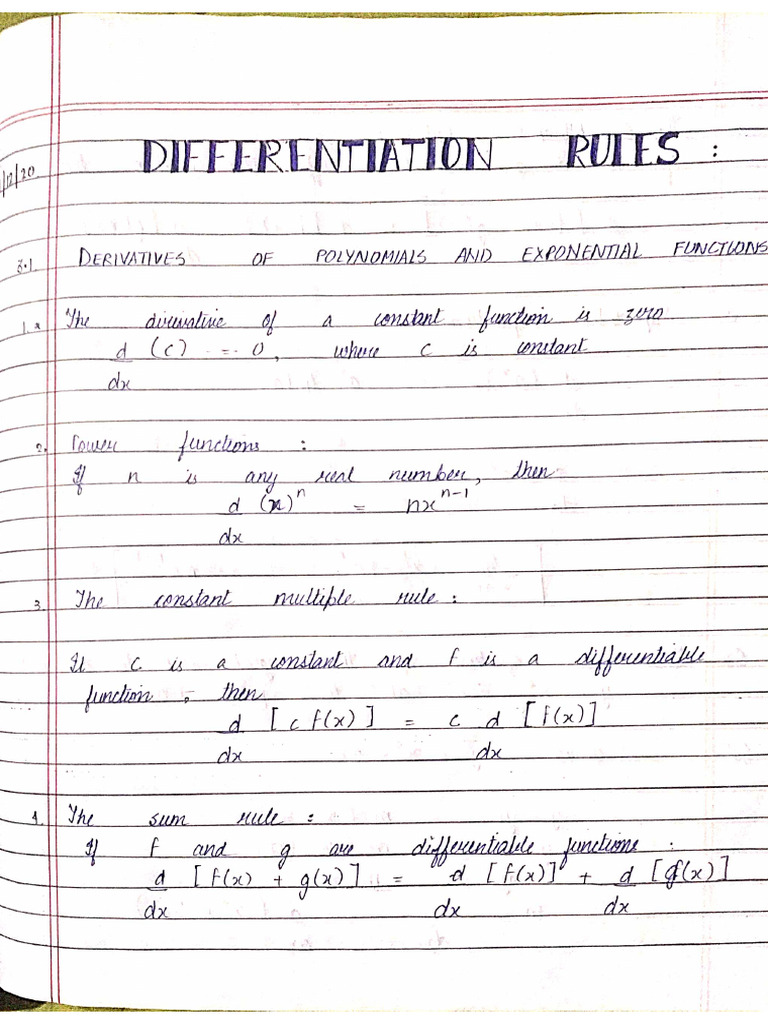 DIFFERENTIATION RULES :
/12/20
3.1. DERIVATIVES OF POLYNOMIALS AND EXPONENTIAL FUNCTIONS
1. The derivative of a constant function is zero
d (c) = 0, where c is constant
dx
2. Power functions :
If n is any real number, then
d (x)^n = nx^n-1
dx
3. The constant multiple rule :
If c is a constant and f is a differentiable
function, then
d [c f(x)] = c d [f(x)]
dx dx
4. The sum rule :
If f and g are differentiable functions :
d [f(x) + g(x)] = d [f(x)] + d [g(x)]
dx dx dx